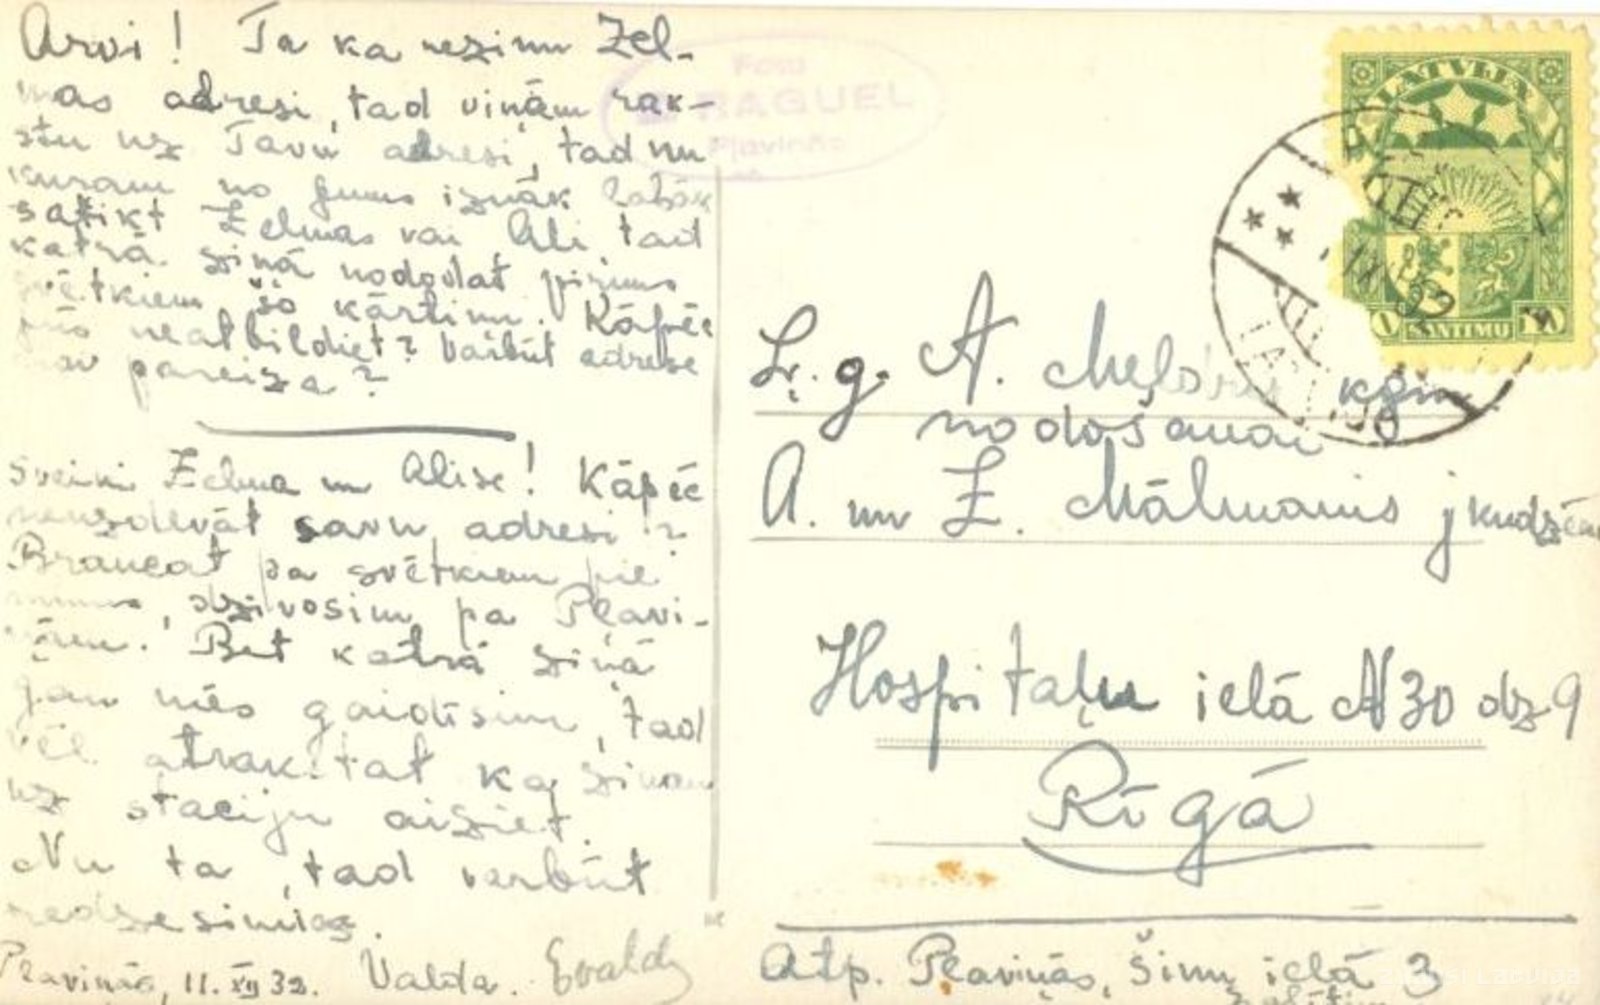 Arvi! Ta ka nezinu Zel-
mas adresi, tad viņām rak-
stu uz Tavu adresi, tad nu
kuram no Jums iznāk labāk
satikt Zelmas vai Ali tad
katrā ziņā nododat pirms
svētkiem šo kārtiņu. Kāpēc
jūs neatbildiet? Varbūt adrese
nav pareiza?
Sveiki Zelma un Alise! Kāpēc
neuzdevāt savu adresi?
Braucat pa svētkiem pie
mums, dzīvosim pa Pļavi-
ņām. Bet katrā ziņā
gan mēs gaidīsim, tad
vēl atrakstat ka zinam
uz staciju aiziet.
Nu ta, tad varbūt
redzēsimies.
Pļaviņās, 11. XII 32. Valda. Evalds
Foto
RAGUEL
Pļaviņās
LATVIJA
10 SANTIMU 10
Ļ. g. A. kgm
nodošanai
A. un Z. Mālmanis jkundzēm
Hospitaļu ielā N 30 dz 9
Rīgā
Atp. Pļaviņās, ielā 3